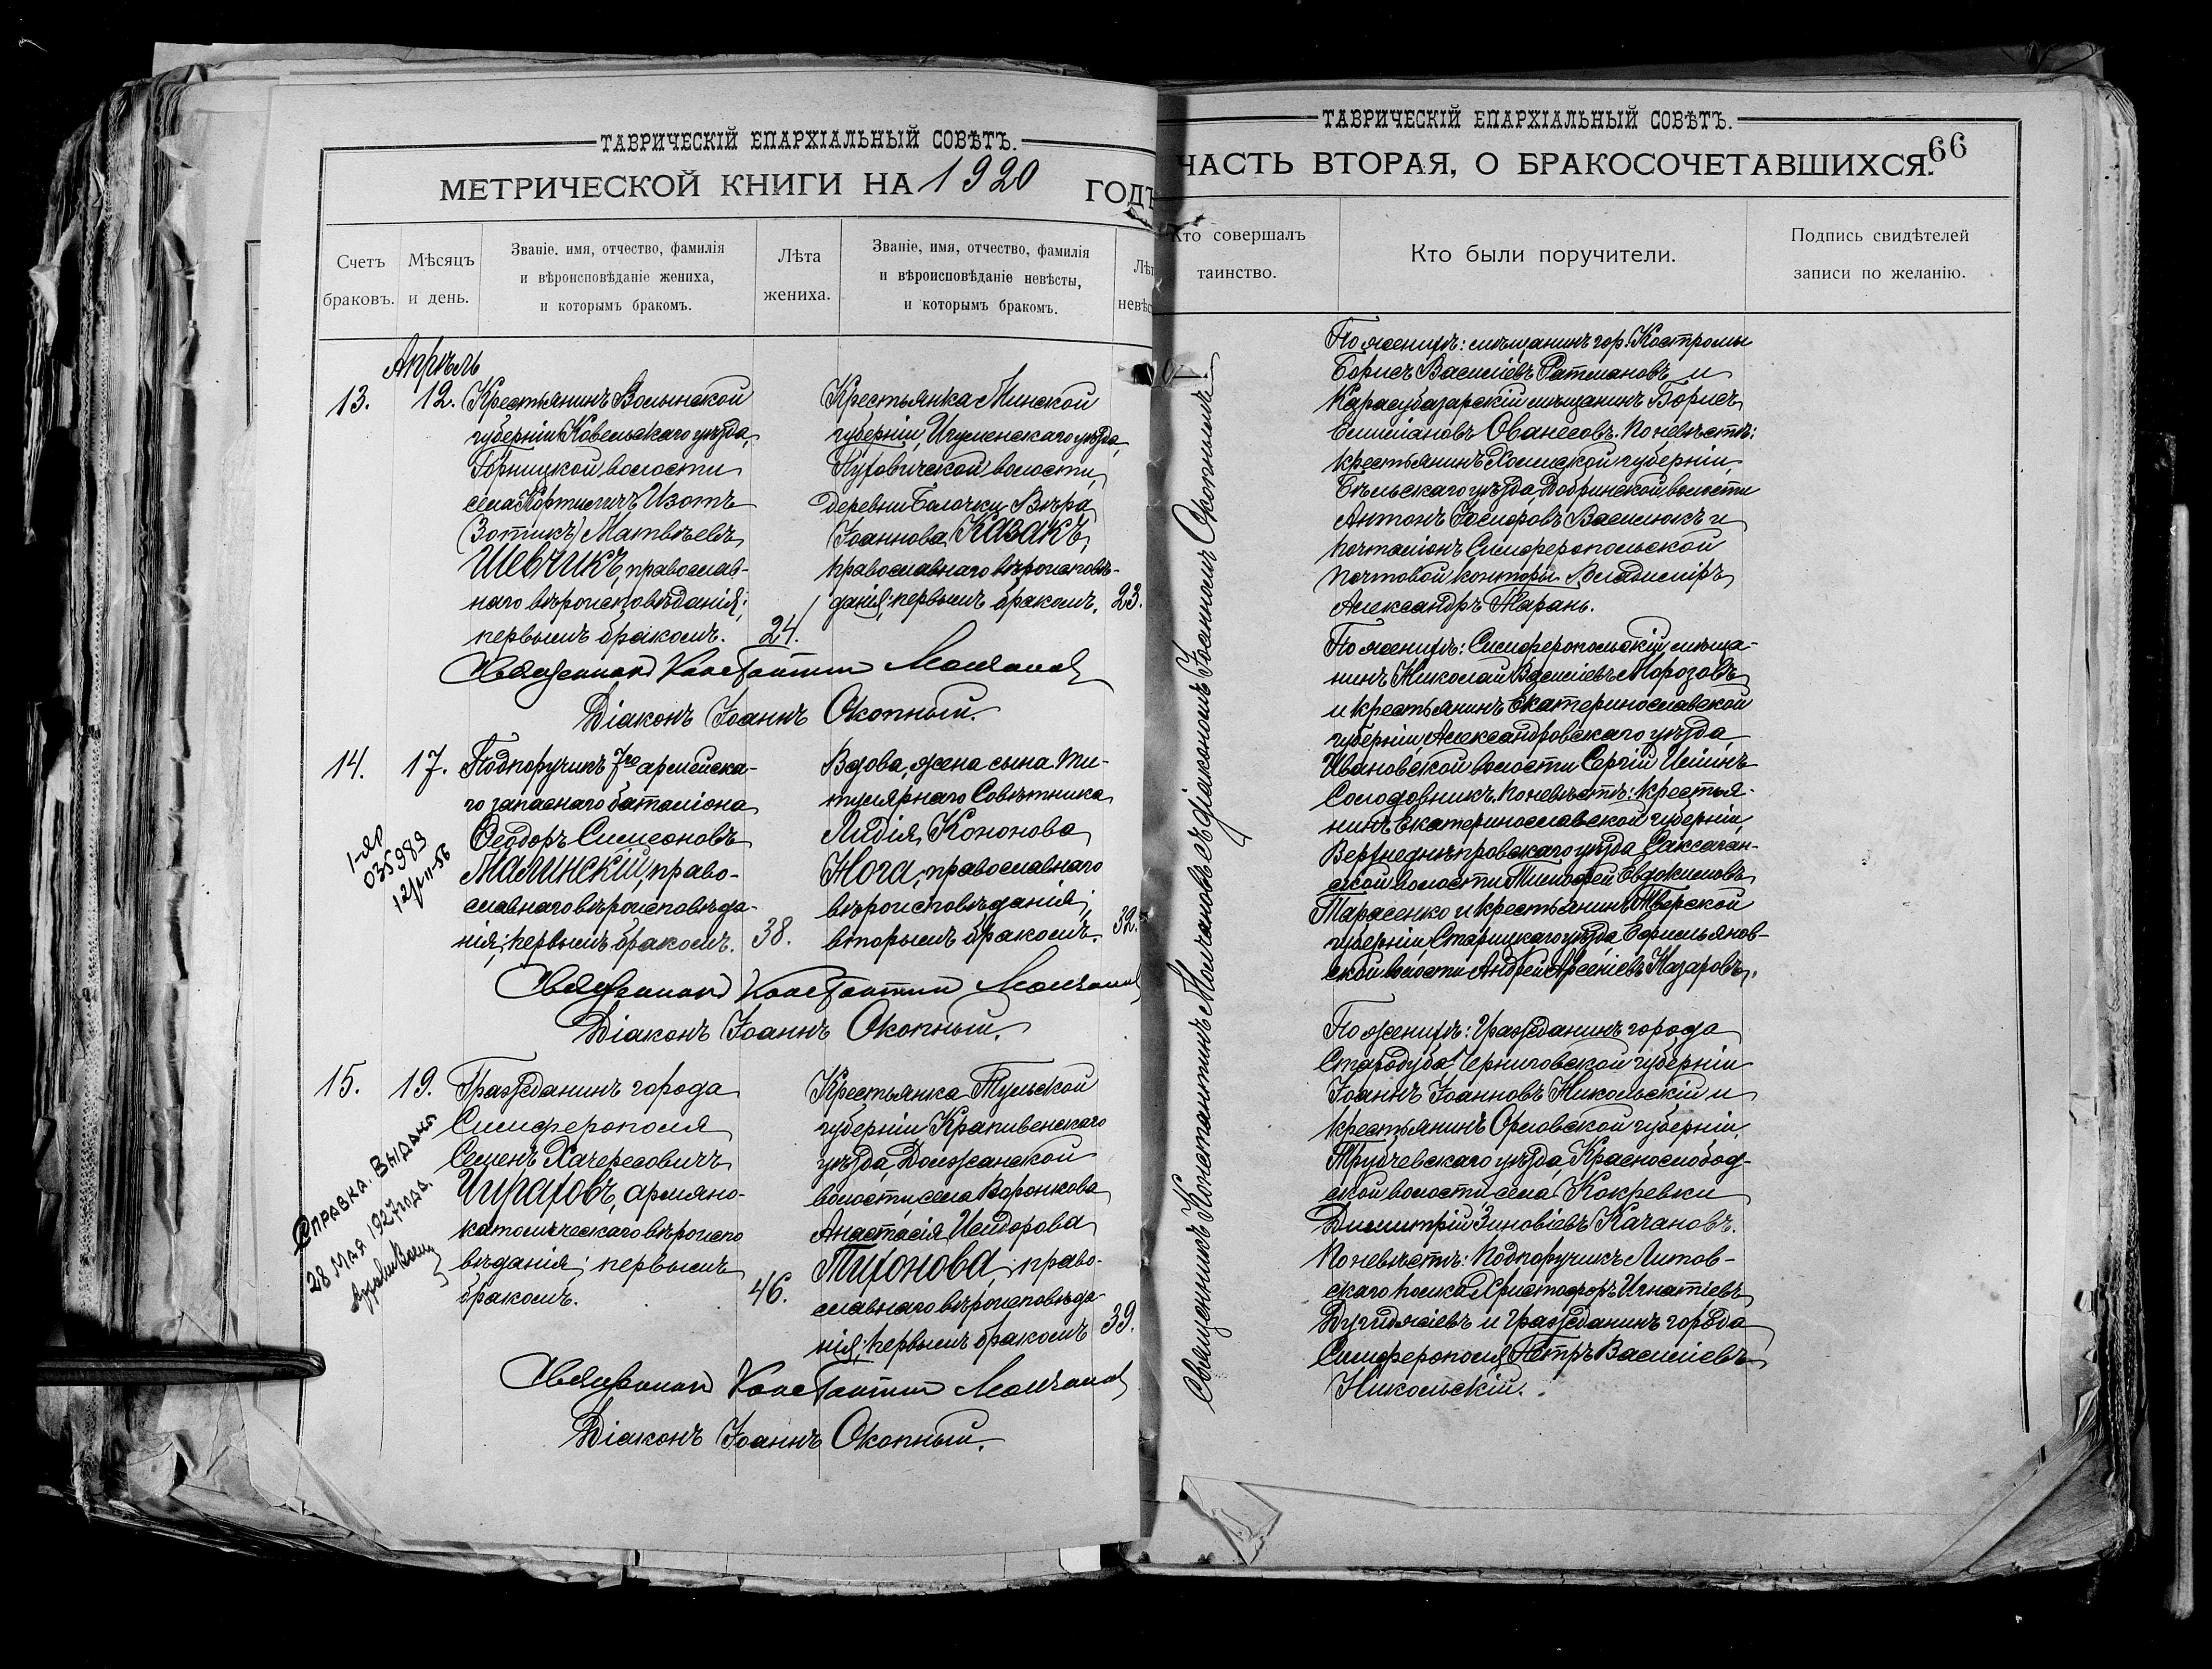 ТАВРИЧЕСКІЙ ЕПАРХІАЛЬНЫЙ СОВѢТЪ.
МЕТРИЧЕСКОЙ КНИГИ НА 1920 ГОДЪ
Счетъ браковъ.
Мѣсяцъ и день.
Званіе, имя, отчество, фамилія
и вѣроисповѣданіе жениха,
и которымъ бракомъ.
Лѣта
жениха.
Званіе, имя, отчество, фамилія
и вѣроисповѣданіе невѣсты,
и которымъ бракомъ.
Лѣт
невѣс
Апрѣль
13.
12.
Крестьянинъ Волынской
губерніи Ковельскаго уѣзда,
Горницкой волости
села Кортилисъ Изотъ
(Зотикъ) Матвѣевъ
Шевчикъ, православ-
наго вѣроисповѣданія;
первымъ бракомъ.
24.
Крестьянка Минской
губерніи, Игуменскаго уѣзда,
Пуховичской волости,
деревни Болочки Вѣра
Іоаннова Казакъ,
православнаго вѣроисповѣ-
данія, первымъ бракомъ.
23.
Священникъ Константинъ Молчановъ
Діаконъ Іоаннъ Окопный.
14.
17.
Подпоручикъ 7го армейска-
го запаснаго баталіона
Ѳеодоръ Симеоновъ
Малинскій, право-
славнаго вѣроисповѣда-
нія; первымъ бракомъ.
38.
Вдова, жена сына ти-
тулярнаго Совѣтника
Лидія Кононова
Нога, православнаго
вѣроисповѣданія;
вторымъ бракомъ.
32.
035989
Священникъ Константинъ Молчановъ
Діаконъ Іоаннъ Окопный.
15.
19.
Гражданинъ города
Симферополя
Семенъ Хачересовичъ
Чираховъ, армяно-
католическаго вѣроиспо
вѣданія; первымъ
бракомъ.
46.
Крестьянка Тульской
губерніи Крапивенскаго
уѣзда, Должанской
волости, села Воронкова
Анастасія Исидорова
Тихонова, право-
славнаго вѣроисповѣда-
нія; первымъ бракомъ
39.
Справка. Выдана
28 мая 1927 года.
Священникъ Константинъ Молчановъ
Діаконъ Іоаннъ Окопный.
ТАВРИЧЕСКІЙ ЕПАРХІАЛЬНЫЙ СОВѢТЪ.
ЧАСТЬ ВТОРАЯ, О БРАКОСОЧЕТАВШИХСЯ.
66
Кто совершалъ
таинство.
Кто были поручители.
Подпись свидѣтелей
записи по желанію.
Священникъ Константинъ Молчановъ съ діакономъ Іоанномъ Окопнымъ.
По женихѣ: мѣщанинъ гор. Костромы
Борисъ Василіевъ Ратмановъ и
Карасубазарскій мѣщанинъ Борисъ
Емиліановъ Ованесовъ. По невѣстѣ:
крестьянинъ Холмской губерніи
Бѣльскаго уѣзда, Добринской волости
Антонъ Іосифовъ Василюкъ и
почталіонъ Симферопольской
почтовой конторы Владиміръ
Александръ Тарань.
По женихѣ: Симферопольскій мѣща-
нинъ Николай Василіевъ Морозовъ
и крестьянинъ Екатеринославской
губерніи, Александровскаго уѣзда
Ивановской волости Сергій Исіинъ
Солодовникъ. По невѣстѣ: крестья-
нинъ Екатеринославской губерніи,
Верхнеднѣпровскаго уѣзда, Саксаган-
ской волости Тимоѳей Евдокимовъ
Тарасенко и крестьянинъ Тверской
губерніи, Старицкаго уѣзда, Ефимьянов-
ской волости Андрей Арсеніевъ Назаровъ.
По женихѣ: Гражданинъ города
Стародуба, Черниговской губерніи
Іоаннъ Іоанновъ Никольскій и
крестьянинъ Орловской губерніи,
Трубчевскаго уѣзда, Краснослобод-
ской волости села Кокревки
Димитрій Зиновіевъ Качановъ.
По невѣстѣ: Подпоручикъ Литов-
скаго полка Христофоръ Игнатіевъ
и Гражданинъ города
Симферополя Петръ Василіевъ
Никольскій.